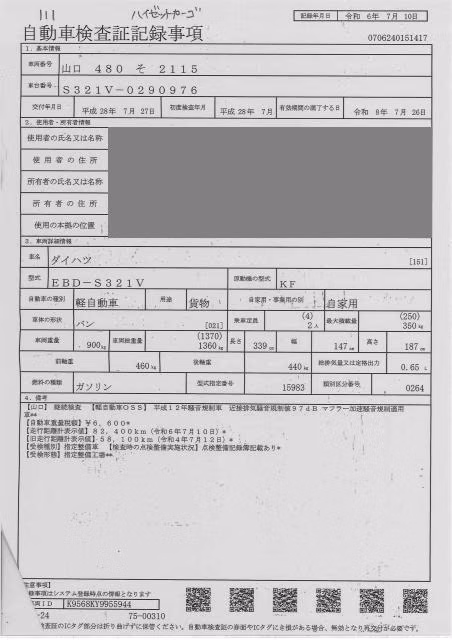 111 ハイゼットカーゴ
記録年月日 令和 6年 7月 10日
自動車検査証記録事項
0706240151417
1．基本情報
車両番号 山口 480 そ 2115
車台番号 S321V-0290976
交付年月日 平成28年 7月 27日 初度検査年月 平成28年 7月 有効期間の満了する日 令和 8年 7月 26日
2．使用者・所有者情報
使用者の氏名又は名称
使用者の住所
所有者の氏名又は名称
所有者の住所
使用の本拠の位置
3．車両詳細情報
車名 ダイハツ [151]
型式 EBD-S321V 原動機の型式 KF
自動車の種別 軽自動車 用途 貨物 自家用・事業用の別 自家用
車体の形状 バン [021] 乗車定員 (4) 2人 最大積載量 (250) 350kg
車両重量 900kg 車両総重量 (1370) 1360kg 長さ 339cm 幅 147cm 高さ 187cm
前軸重 460kg 後軸重 440kg 総排気量又は定格出力 0.65 L
燃料の種類 ガソリン 型式指定番号 15983 類別区分番号 0264
4．備考
【山口】 継続検査 【軽自動車OSS】 平成12年騒音規制車 近接排気騒音規制値97dB マフラー加速騒音規制適用
車**
【自動車重量税額】¥6,600*
【走行距離計表示値】82,400km（令和6年7月10日）*
【旧走行距離計表示値】58,100km（令和4年7月12日）*
【受検種別】指定整備車 【検査時の点検整備実施状況】点検整備記録簿記載あり*
【受検形態】指定整備工場**
注意事項】
録事項はシステム登録時点の情報となります
両ID K9568KY9955944
-24 75-00310
検査証のICタグ部分は折り曲げずに保管ください。自動車検査証の券面やICタグにき損がある場合、無効となり再交付が必要です。